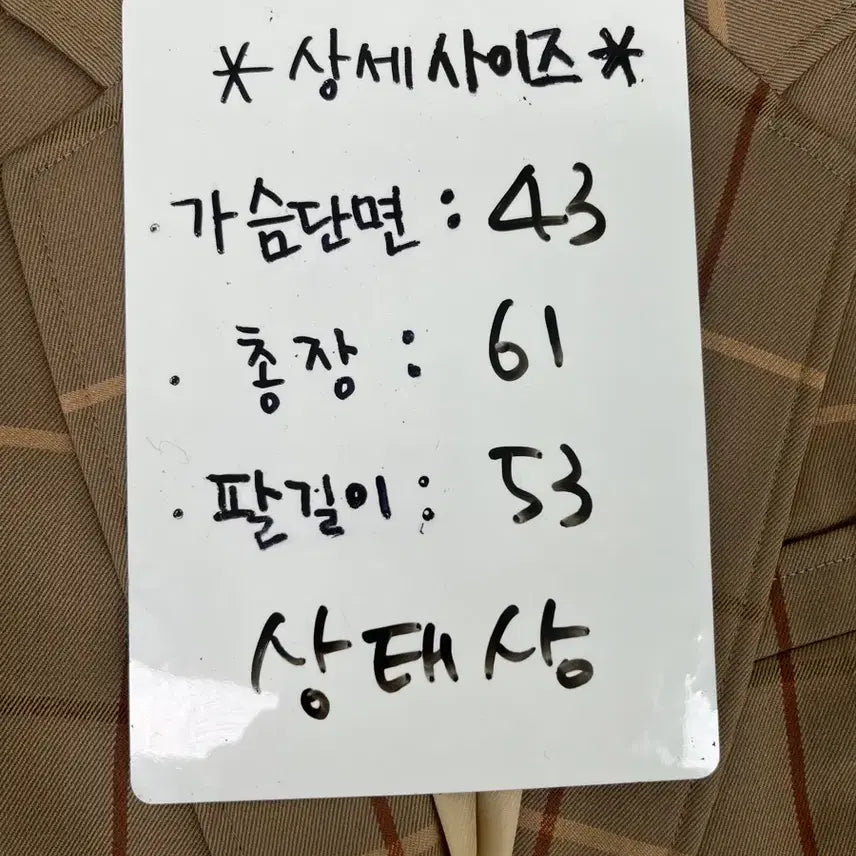 *상세사이즈*
· 가슴단면 : 43
· 총장 : 61
· 팔길이 : 53
상태상